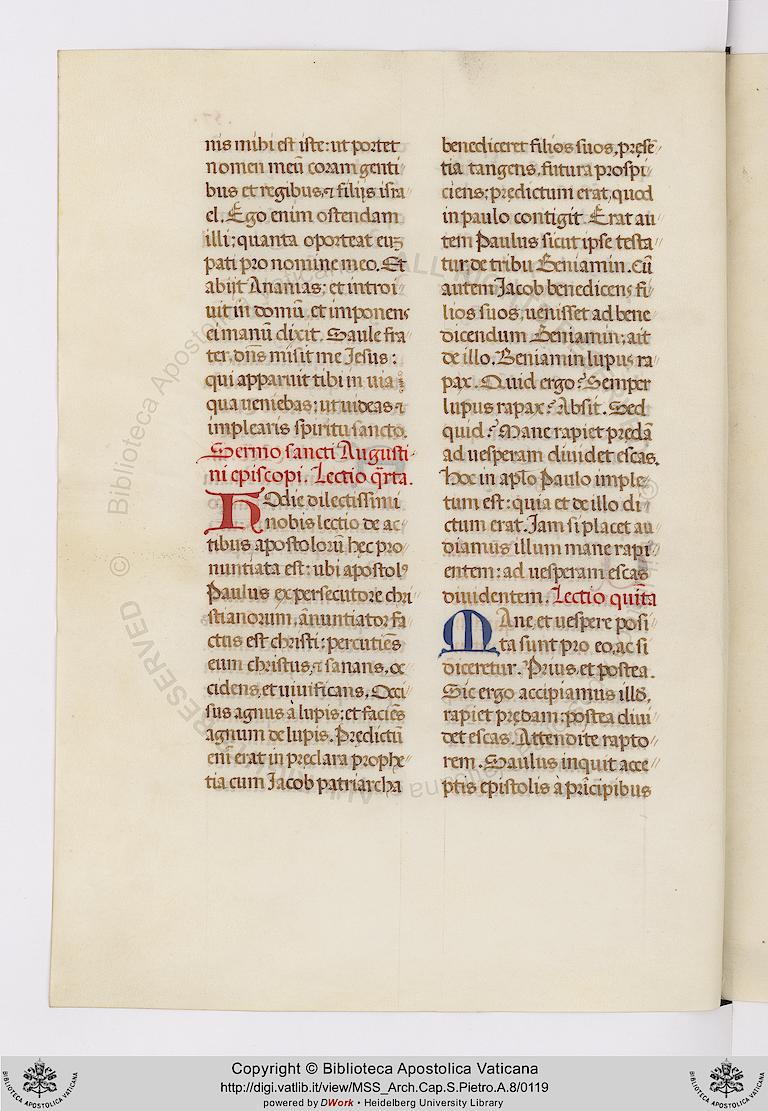 nis mihi est iste: ut portet
nomen meū coram genti
bus et regibus, ⁊ filijs isra
el. Ego enim ostendam
illi: quanta oporteat euʒ
pati pro nomine meo. Et
abijt Ananias: et introi
uit in domū, et imponens
ei manū dixit. Saule fra
ter, dn̄s misit me Jesus:
qui apparuit tibi in uia
qua ueniebas: ut uideas ⁊
implearis spiritu sancto.
Sermo sancti Augusti
ni episcopi. Lectio q̄rta.
Hodie dilectissimi
nobis lectio de ac
tibus apostolorū hęc pro
nuntiata est: ubi apostolꝰ
Paulus ex persecutore chri
stianorum, ānuntiator fa
ctus est christi: percutiēs
eum christus, ⁊ sanans, oc
cidens, et uiuificans, Occi
sus agnus à lupis: et faciēs
agnum de lupis. Prędictū
enī erat in pręclara prophe
tia cum Jacob patriarcha
benediceret filios suos, pręsē
tia tangens, futura prospi
ciens: prędictum erat, quod
in paulo contigit. Erat au
tem Paulus sicut ipse testa
tur, de tribu Beniamin. Cū
autem Jacob benedicens fi
lios suos, uenisset ad bene
dicendum Beniamin: ait
de illo. Beniamin lupus ra
pax. Quid ergo? Semper
lupus rapax? Absit. Sed
quid? Mane rapiet prędā
ad uesperam diuidet escas.
Hoc in apl̄o Paulo imple
tum est: quia et de illo di
ctum erat. Jam si placet au
diamus illum mane rapi
entem: ad uesperam escas
diuidentem. Lectio quīta
Mane, et uespere posi
ta sunt pro eo, ac si
diceretur. Prius, et postea.
Sic ergo accipiamus illd̄,
rapiet prędam: postea diui
det escas. Attendite rapto
rem. Saulus inquit acce
ptis epistolis à prīcipibus
© Biblioteca Apostolica Vaticana
ALL RIGHTS RESERVED
Copyright © Biblioteca Apostolica Vaticana
http://digi.vatlib.it/view/MSS_Arch.Cap.S.Pietro.A.8/0119
powered by DWork • Heidelberg University Library
BIBLIOTECA APOSTOLICA VATICANA
BIBLIOTECA APOSTOLICA VATICANA